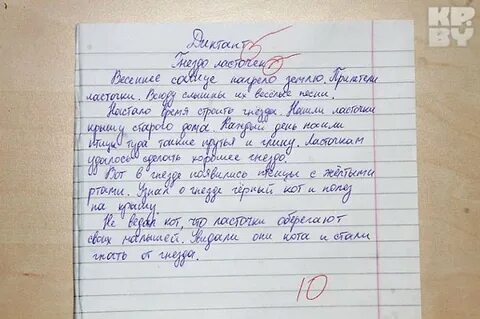 КР
BY
Диктант
Гнездо ласточек
Весеннее солнце нагрело землю. Прилетели
ласточки. Всюду слышны их весёлые песни.
Настало время строить гнёзда. Нашли ласточки
крышу старого дома. Каждый день носили
птицы туда тонкие прутья и глину. Ласточкам
удалось сделать хорошее гнездо.
Вот в гнезде появились птенцы с жёлтыми
ртами. Узнал о гнезде чёрный кот и полез
на крышу.
Не ведал кот, что ласточки оберегают
своих малышей. Увидали они кота и стали
гнать от гнезда.
10